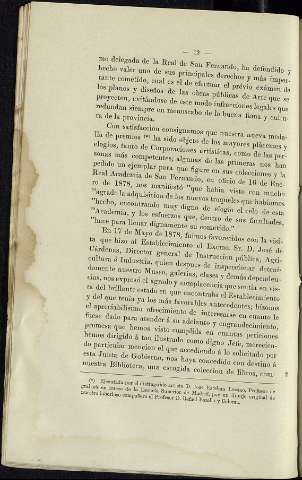 — 12 —
mo delegada de la Real de San Fernando, ha defendido y
hecho valer uno de sus principales derechos y más impor-
tante cometido, cual es el de efectuar el prévio exámen de
los planos y diseños de las obras públicas de Arte que se
proyecten, evitándose de este modo infracciones legales que
redundan siempre en menoscabo de la buena fama y cultu-
ra de la provincia.
Con satisfacción consignamos que nuestra nueva meda-
lla de premios (*) ha sido objeto de los mayores plácemes y
elogios, tanto de Corporaciones artísticas, como de las per-
sonas más competentes; algunas de las primeras nos han
pedido un ejemplar para que figure en sus colecciones y la
Real Academia de San Fernando, en oficio de 16 de Ene-
ro de 1878, nos manifestó "que habia visto con mucho
"agrado la adquisicion de los nuevos troqueles que habiamos
"hecho, encontrando muy digno de elogio el celo de esta
"Academia, y los esfuerzos que, dentro de sus facultades,
"hace para llenar dignamente su cometido."
En 17 de Mayo de 1878, fuimos favorecidos con la visi-
ta que hizo al Establecimiento el Excmo. Sr. D. José de
Cárdenas, Director general de Instruccion pública, Agri-
cultura é Industria, quien despues de inspeccionar deteni-
damente nuestro Museo, galerias, clases y demás dependen-
cias, nos expuso el agrado y complacencia que sentia en vis-
ta del brillante estado en que encontraba el Establecimiento
y del que tenia ya los más favorables antecedentes; hízonos
el apreciabilísimo ofrecimiento de interesarse en cuanto le
fuese dado para atender á su adelanto y engrandecimiento,
promesa que hemos visto cumplida en cuantas peticiones
hemos dirigido á tan ilustrado como digno Jefe, merecien-
do particular mencion el que accediendo á lo solicitado por
esta Junta de Gobierno, nos haya concedido con destino á
nuestra Biblioteca, una escogida coleccion de libros, con
(*) Ejecutada por el distinguido artista D. José Esteban Lozano, Profesor de
grabado en hueco de la Escuela Superior de Madrid, por un dibujo original de
nuestro laborioso compañero el Profesor D. Rafael